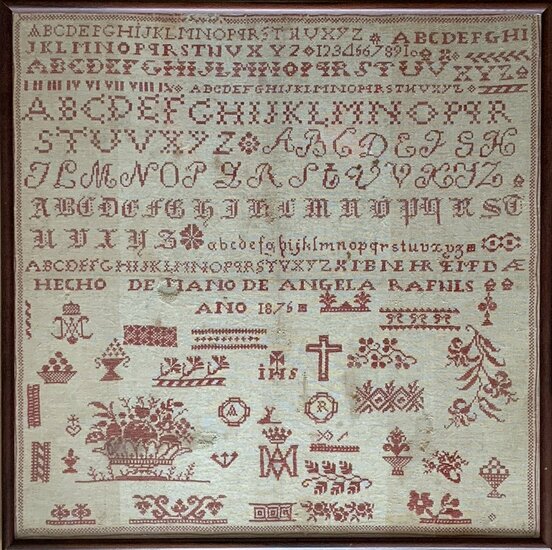 ABCDEFGHIJKLMNOPQRSTUVXYZ ABCDEFGHI
JKLMNOPQRSTUVXYZ 1234567891
ABCDEFGHIJLMNOPQRSTUVXYZ
I II III IV V VI VII VIII IX ABCDEFGHIJKLMNOPQRSTUVXYZ
ABCDEFGHIJKLMNOPQR
STUVXYZ ABCDEFGH
ILMNOPQRSTUVXYZ
ABCDEFGHIHLMNOPQRST
UVXYZ abcdefghijklmnopqrstuvxyz
ABCDEFGHIJKLMNOPQRSTUVXYZ
HECHO DE MANO DE ANGELA
AÑO 1876
IHS
A R